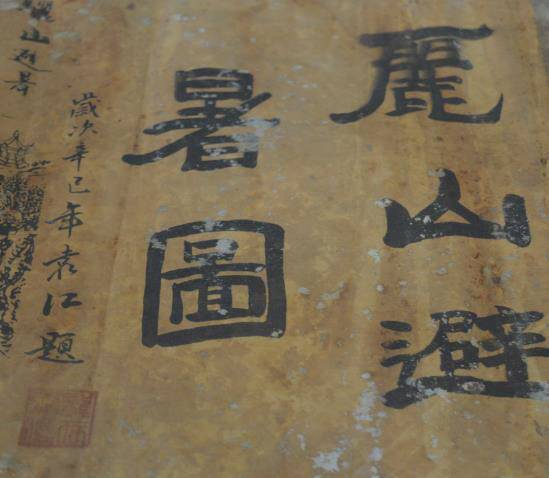 麗山避
暑圖
歲次辛巳年袁江題
麗山避暑